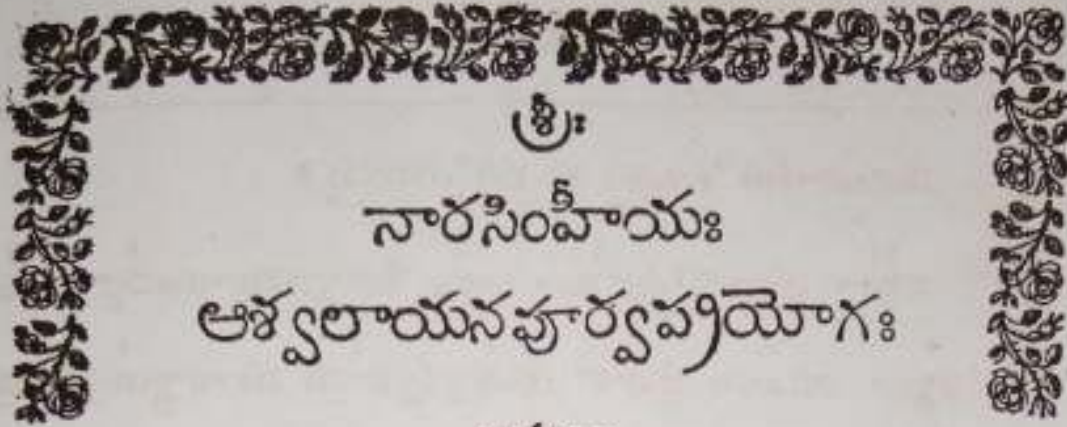 శ్రీః
నారసింహీయః
ఆశ్వలాయనపూర్వప్రయోగః